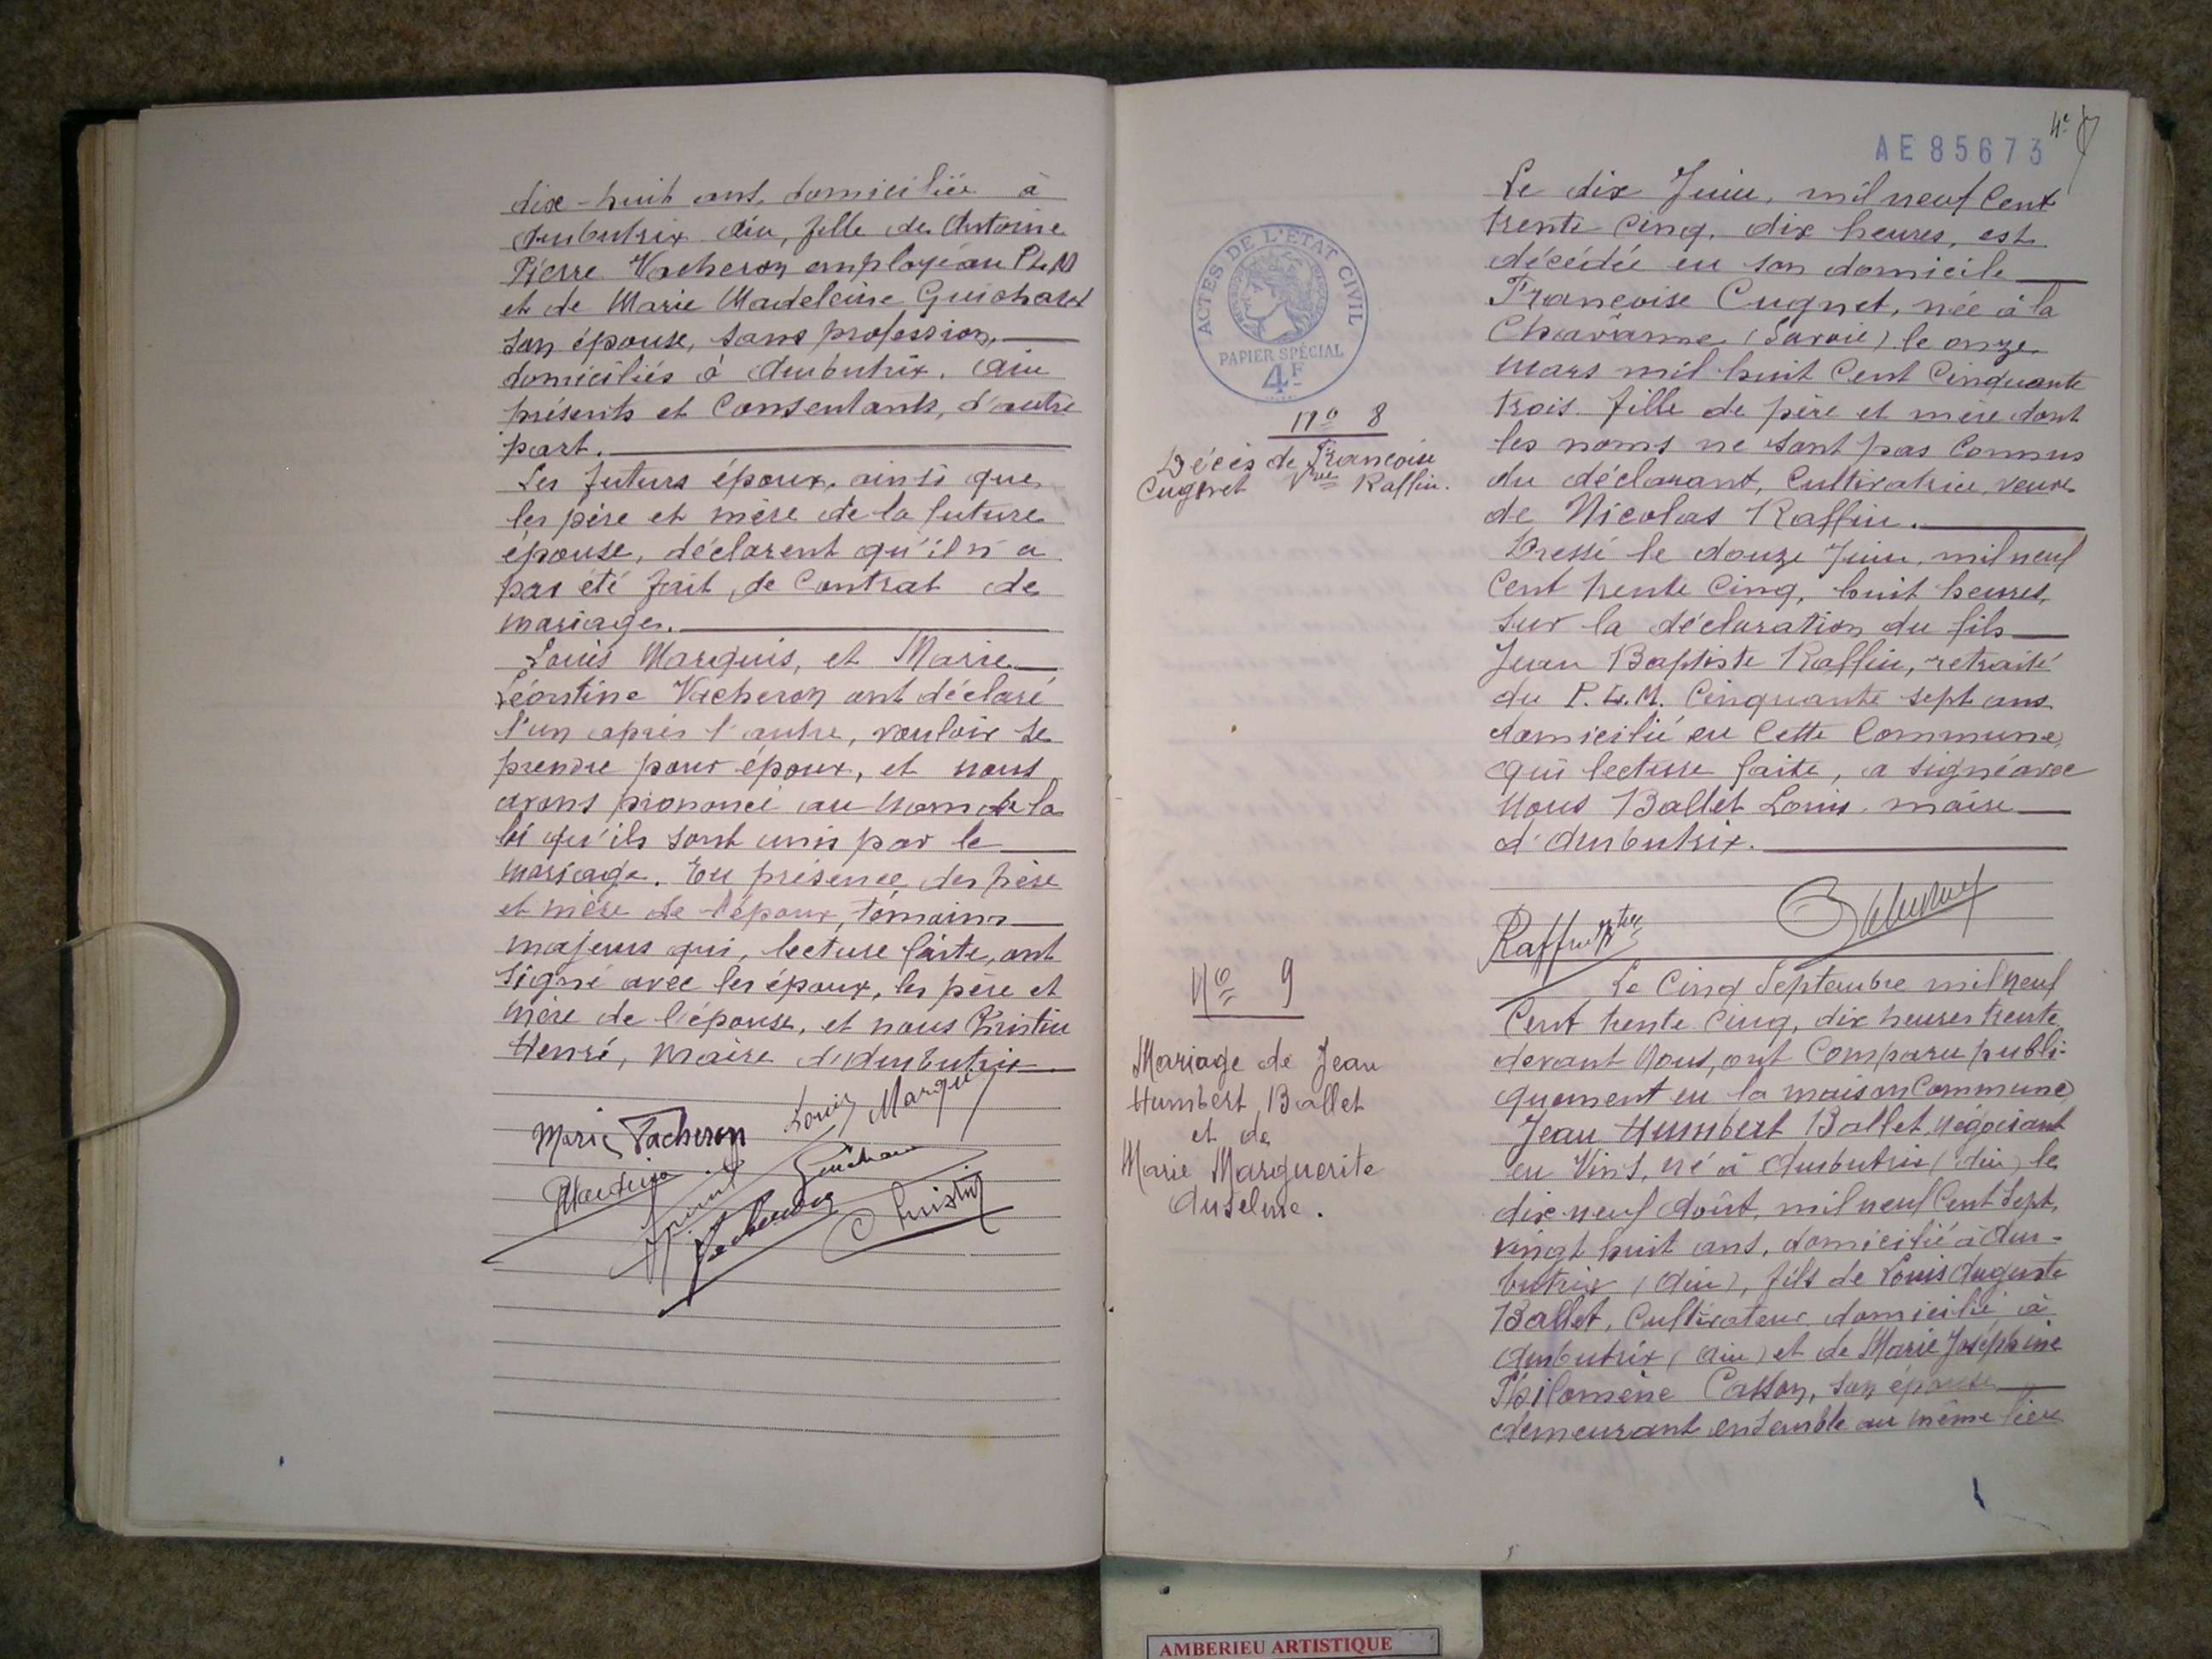 dix-huit ans, domiciliée à
Ambutrix Ain, fille de Antoine
Pierre Vacheron employé au P.L.M
et de Marie Madeleine Guichard
son épouse, sans profession,
domiciliés à Ambutrix. Ain
présents et Consentants, d'autre
part.
Les futurs époux, ainsi que
les père et mère de la future
épouse, déclarent qu'il n'a
pas été fait de Contrat de
mariage.
Louis Marquis, et Marie
Léontine Vacheron ont déclaré
l'un après l'autre, vouloir se
prendre pour époux, et nous
avons prononcé au nom de la
loi qu'ils sont unis par le
mariage. En présence des père
et mère de l'époux, témoins
majeurs qui, lecture faite, ont
signé avec les époux, les père et
mère de l'épouse, et nous Christin
Henri, maire d'Ambutrix
Marie Vacheron Louis Marquis
Guichard
Vacheron Christin
AE 85673
4e
ACTES DE L'ETAT CIVIL
PAPIER SPÉCIAL
4F
No 8
Décès de Françoise
Cugnet Vve Raffin.
Le dix Juin, mil neuf Cent
trente Cinq, dix heures, est
décédée en son domicile
Françoise Cugnet, née à la
Chavanne (Savoie) le onze
mars mil huit Cent Cinquante
trois. fille de père et mère dont
les noms ne sont pas Connus
du déclarant, Cultivatrice, veuve
de Nicolas Raffin.
Dressé le douze Juin, mil neuf
Cent trente Cinq, huit heures,
sur la déclaration du fils
Jean Baptiste Raffin, retraité
du P.L.M. Cinquante sept ans
domicilié en Cette Commune,
qui lecture faite, a signé avec
Nous Ballet Louis, maire
d'Ambutrix.
Raffin
No 9
Mariage de Jean
Humbert Ballet
et de
Marie Marguerite
Anselme.
Le Cinq Septembre mil neuf
Cent trente Cinq, dix heures trente
devant Nous, ont Comparu publi-
quement en la maison Commune
Jean Humbert Ballet, Négociant
en Vins, né à Ambutrix (Ain) le
dix neuf Août, mil neuf Cent Sept,
vingt huit ans, domicilié à Am-
butrix (Ain), fils de Louis Auguste
Ballet, Cultivateur domicilié à
Ambutrix (Ain) et de Marie Joséphine
Philomène Casson, son épouse
demeurant ensemble au même lieu
AMBERIEU ARTISTIQUE